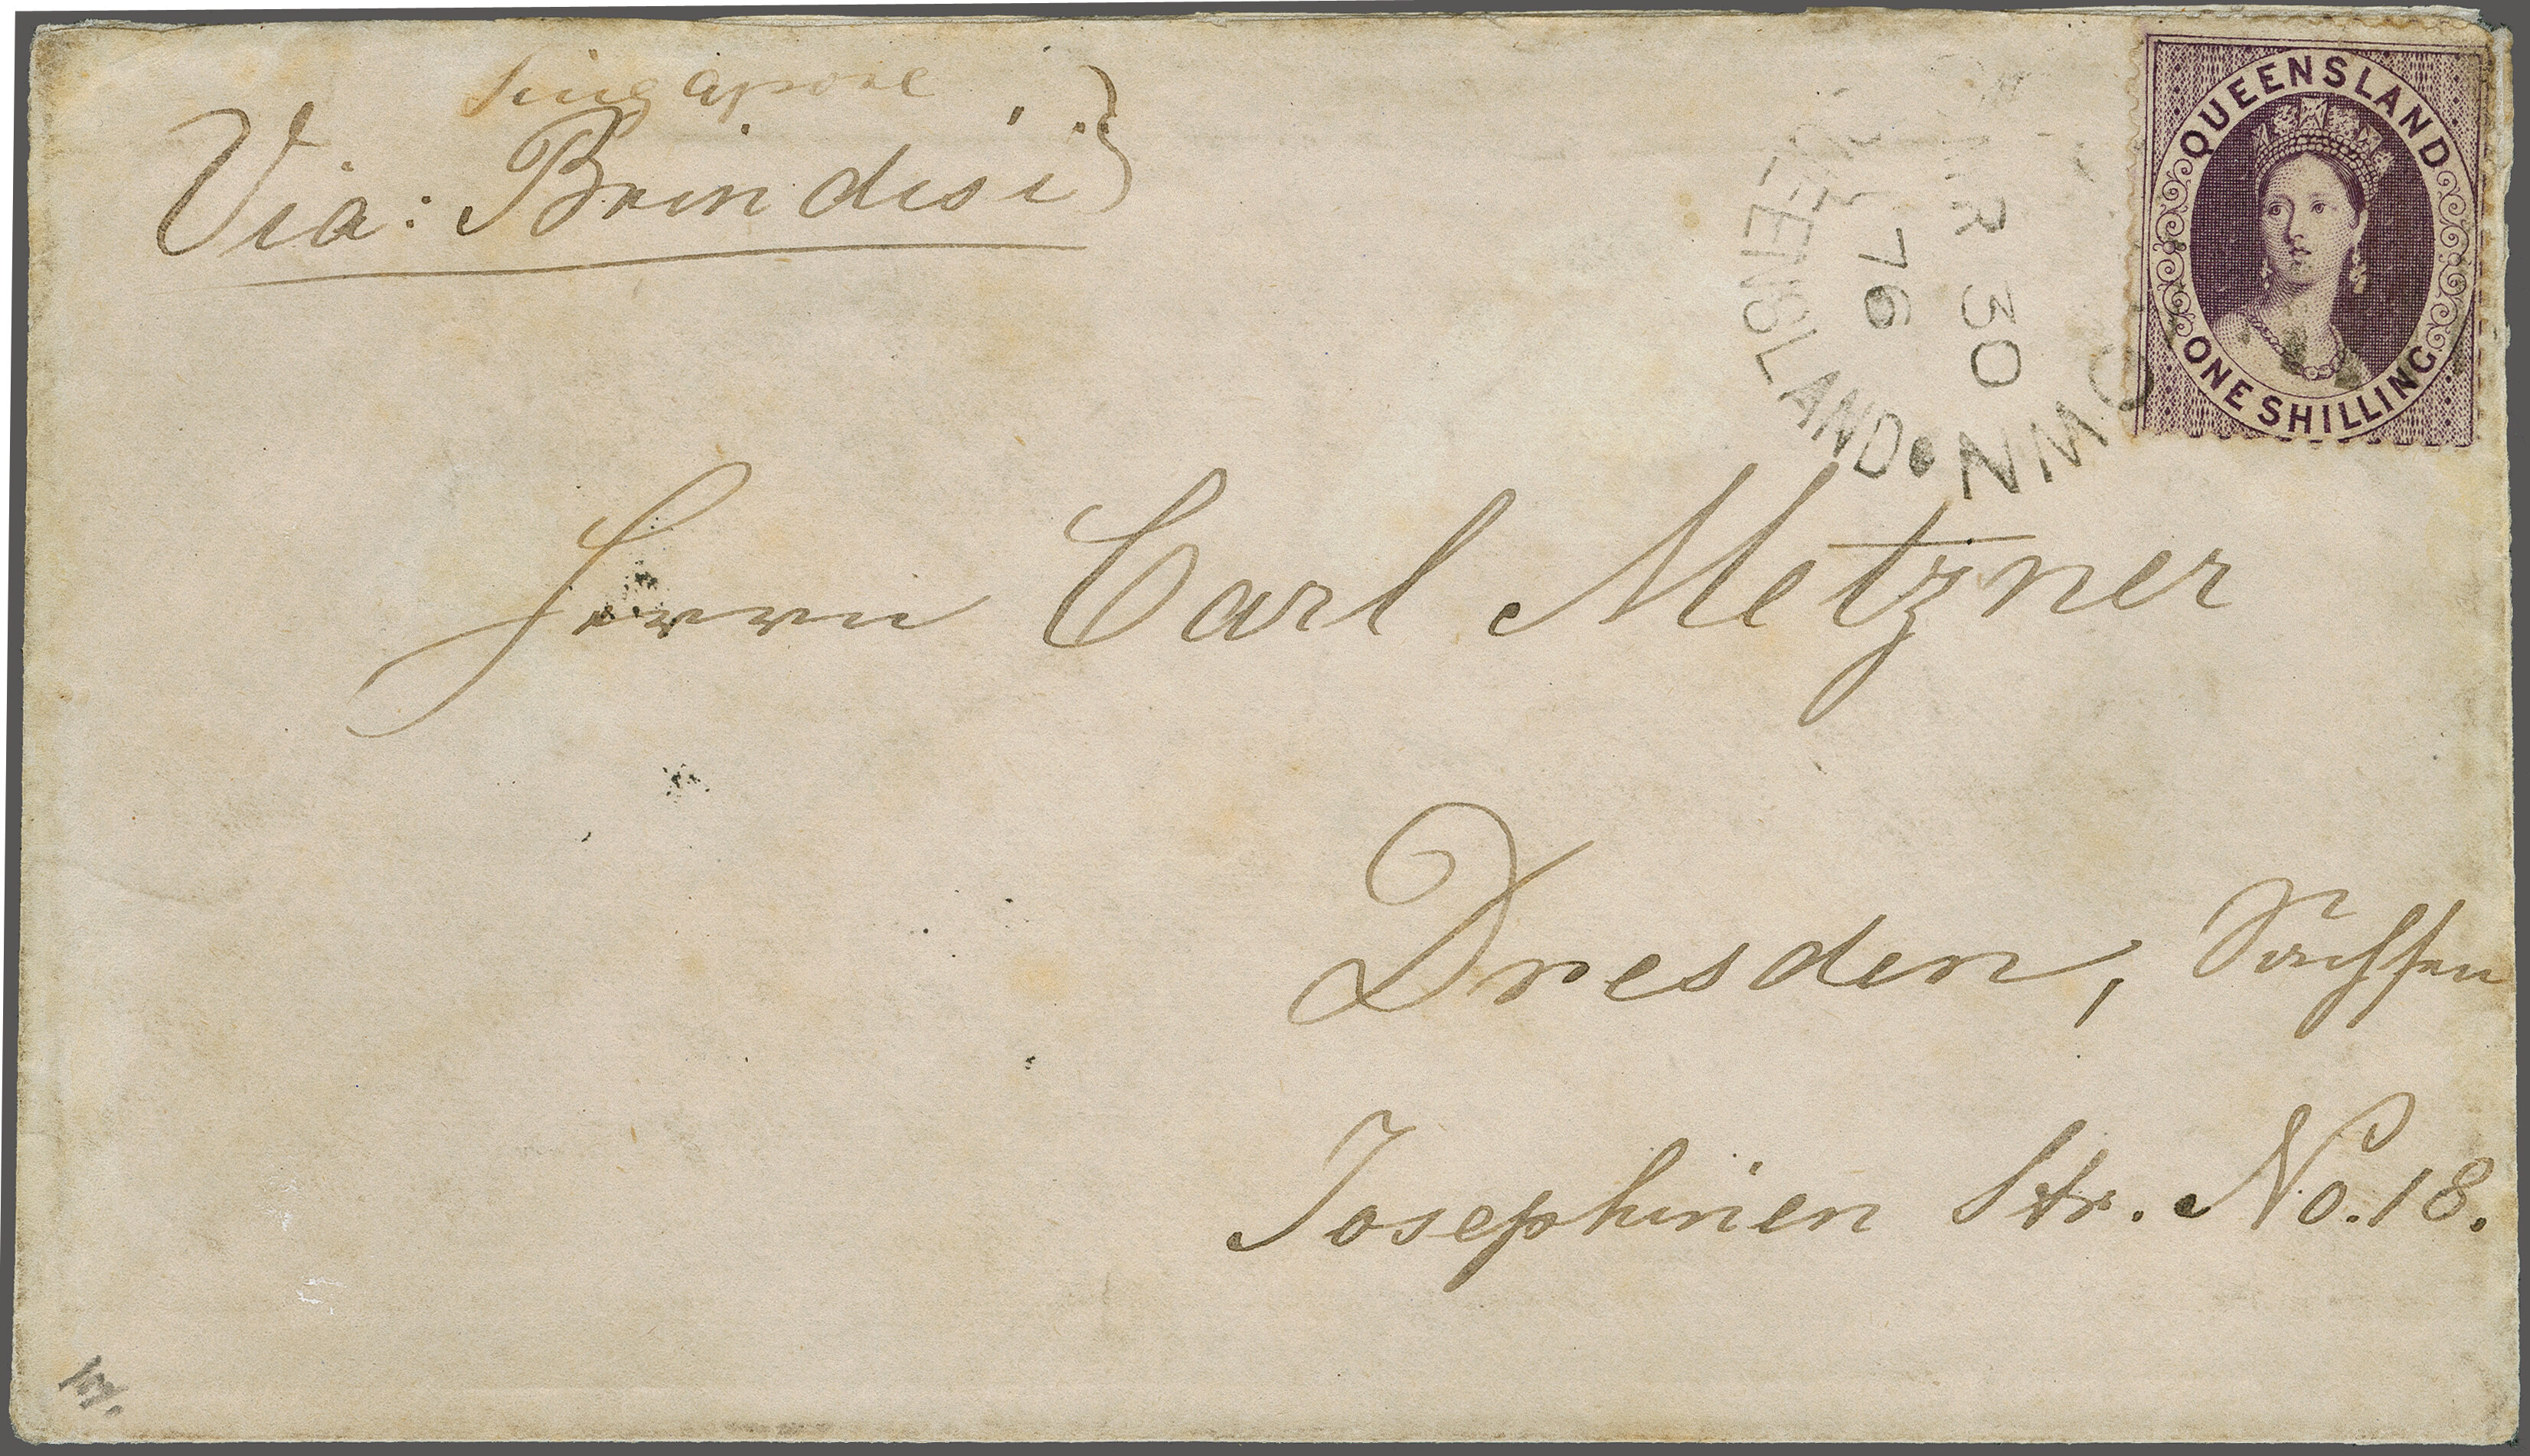 Singapore
Via: Brindisi
QUEENSLAND
ONE SHILLING
MR 30
76
QUEENSLAND
OWN
Herrn Carl Metzner
Dresden, Sachsen
Josephinen Str. No. 18.